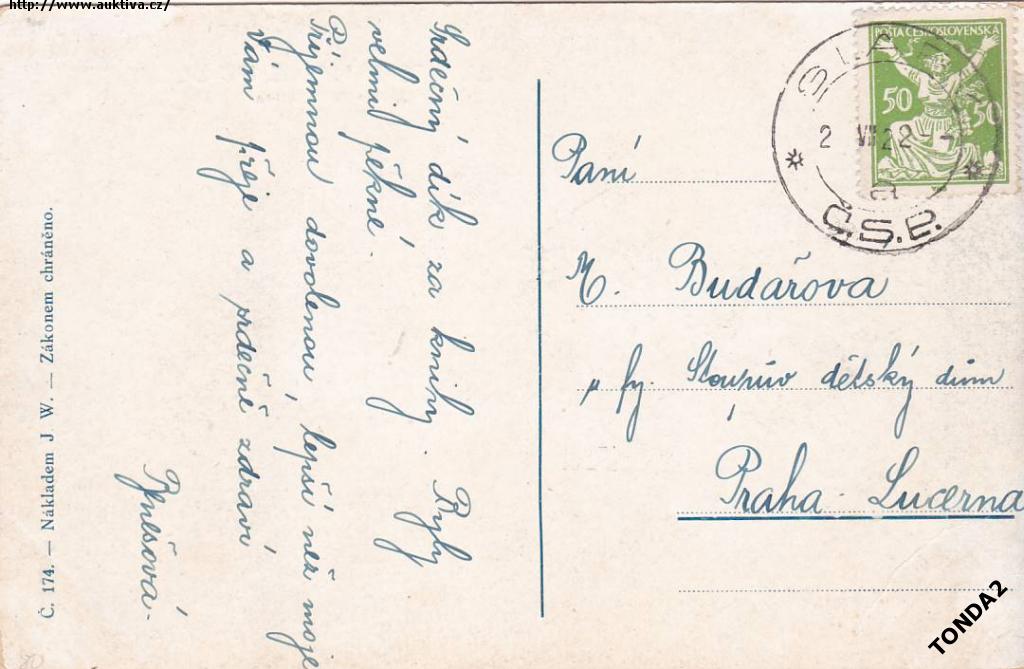 http://www.auktiva.cz/
Č. 174. — Nákladem J. W. — Zákonem chráněno.
Srdečný dík za knihy. Byly
velmi pěkné.
Příjemnou dovolenou, lepší než moje
Vám přeje a srdečně zdraví
Benešová.
POŠTA ČESKOSLOVENSKA
50 50
2 VII 22
Č.S.P.
Paní
M. Budařova
fy. Stoupův dětský dům
Praha - Lucerna
TONDA2